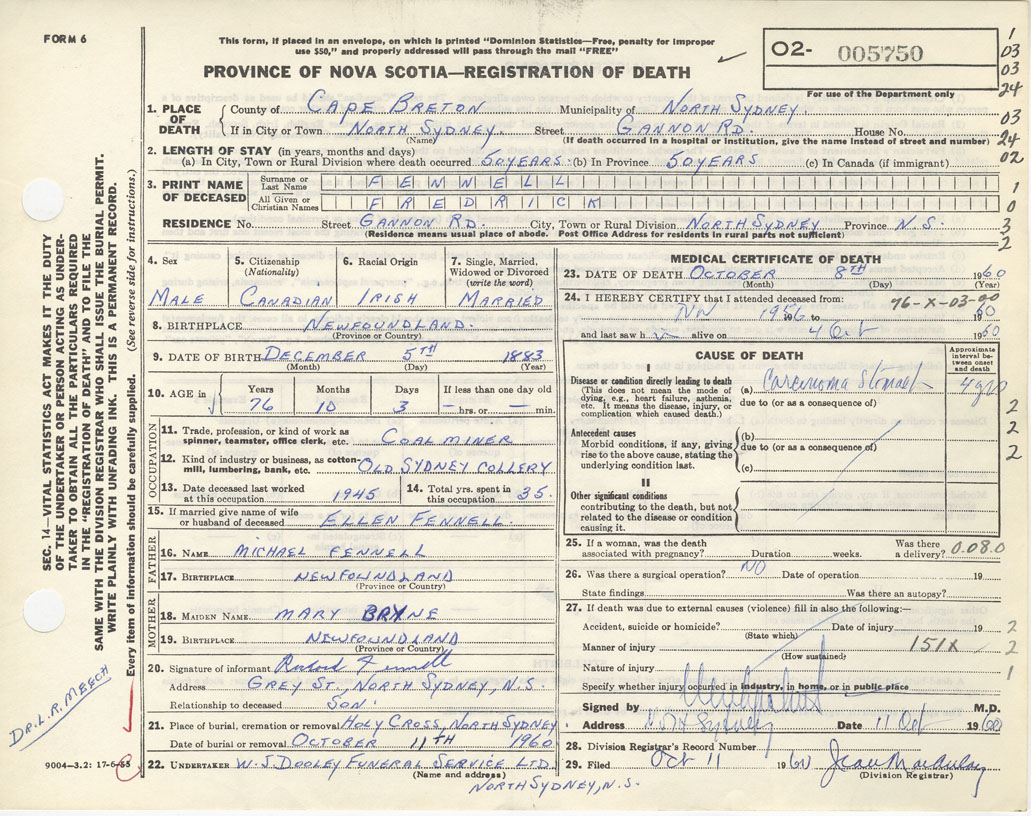 FORM 6
This form, if placed in an envelope, on which is printed "Dominion Statistics—Free, penalty for improper
use $50," and properly addressed will pass through the mail "FREE"
PROVINCE OF NOVA SCOTIA—REGISTRATION OF DEATH
02- 005750
For use of the Department only
1
03
03
24
03
24
02
1
0
3
2
1. PLACE OF DEATH County of CAPE BRETON Municipality of NORTH SYDNEY.
If in City or Town NORTH SYDNEY. Street GANNON RD. House No.
(Name) (If death occurred in a hospital or Institution, give the name instead of street and number)
2. LENGTH OF STAY (in years, months and days)
(a) In City, Town or Rural Division where death occurred 50 YEARS. (b) In Province 50 YEARS (c) In Canada (if immigrant)
3. PRINT NAME OF DECEASED
Surname or Last Name FENNELL
All Given or Christian Names FREDRICK
RESIDENCE No. Street GANNON RD. City, Town or Rural Division NORTH SYDNEY Province N.S.
(Residence means usual place of abode. Post Office Address for residents in rural parts not sufficient)
4. Sex
MALE
5. Citizenship
(Nationality)
CANADIAN
6. Racial Origin
IRISH
7. Single, Married,
Widowed or Divorced
(write the word)
MARRIED
8. BIRTHPLACE NEWFOUNDLAND.
(Province or Country)
9. DATE OF BIRTH DECEMBER 5TH 1883
(Month) (Day) (Year)
10. AGE in
Years Months Days If less than one day old
76 10 3 — hrs. or — min.
OCCUPATION
11. Trade, profession, or kind of work as
spinner, teamster, office clerk, etc. COAL MINER
12. Kind of industry or business, as cotton-
mill, lumbering, bank, etc. OLD SYDNEY COLLERY
13. Date deceased last worked
at this occupation 1945
14. Total yrs. spent in
this occupation 35.
15. If married give name of wife
or husband of deceased ELLEN FENNELL.
FATHER
16. NAME MICHAEL FENNELL
17. BIRTHPLACE NEWFOUNDLAND
(Province or Country)
MOTHER
18. MAIDEN NAME MARY BRYNE
19. BIRTHPLACE NEWFOUNDLAND
(Province or Country)
20. Signature of informant Fennell
Address GREY ST., NORTH SYDNEY, N.S.
Relationship to deceased SON.
21. Place of burial, cremation or removal HOLY CROSS, NORTH SYDNEY
Date of burial or removal OCTOBER 11TH 1960
22. UNDERTAKER W.J. DOOLEY FUNERAL SERVICE LTD.
(Name and address)
NORTH SYDNEY, N.S.
MEDICAL CERTIFICATE OF DEATH
23. DATE OF DEATH OCTOBER 8TH 1960
(Month) (Day) (Year)
24. I HEREBY CERTIFY that I attended deceased from: 76-X-03-00
1956 to 1960
and last saw h alive on 4 Oct 1960
CAUSE OF DEATH
Approximate interval be-tween onset and death
I
Disease or condition directly leading to death
(This does not mean the mode of
dying, e.g., heart failure, asthenia,
etc. It means the disease, injury, or
complication which caused death.)
(a) Carcinoma Stomach 4 yrs
due to (or as a consequence of)
Antecedent causes
Morbid conditions, if any, giving
rise to the above cause, stating the
underlying condition last.
(b)
due to (or as a consequence of)
(c)
2
2
2
II
Other significant conditions
contributing to the death, but not
related to the disease or condition
causing it.
25. If a woman, was the death
associated with pregnancy? Duration weeks. Was there
a delivery? 0.08.0
26. Was there a surgical operation? NO Date of operation 19
State findings Was there an autopsy?
27. If death was due to external causes (violence) fill in also the following:—
Accident, suicide or homicide? Date of injury 19 2
(State which)
Manner of injury 151X 2
(How sustained)
Nature of injury 1
Specify whether injury occurred in industry, in home, or in public place
Signed by M.D.
Address Sydney Date 11 Oct 1960
28. Division Registrar's Record Number
29. Filed Oct 11 1960
(Division Registrar)
SEC. 14—VITAL STATISTICS ACT MAKES IT THE DUTY
OF THE UNDERTAKER OR PERSON ACTING AS UNDER-
TAKER TO OBTAIN ALL THE PARTICULARS REQUIRED
IN THE "REGISTRATION OF DEATH" AND TO FILE THE
SAME WITH THE DIVISION REGISTRAR WHO SHALL ISSUE THE BURIAL PERMIT.
WRITE PLAINLY WITH UNFADING INK. THIS IS A PERMANENT RECORD.
Every item of Information should be carefully supplied. (See reverse side for instructions.)
DR. L.R. MEECH
9004—3.2: 17-6-53